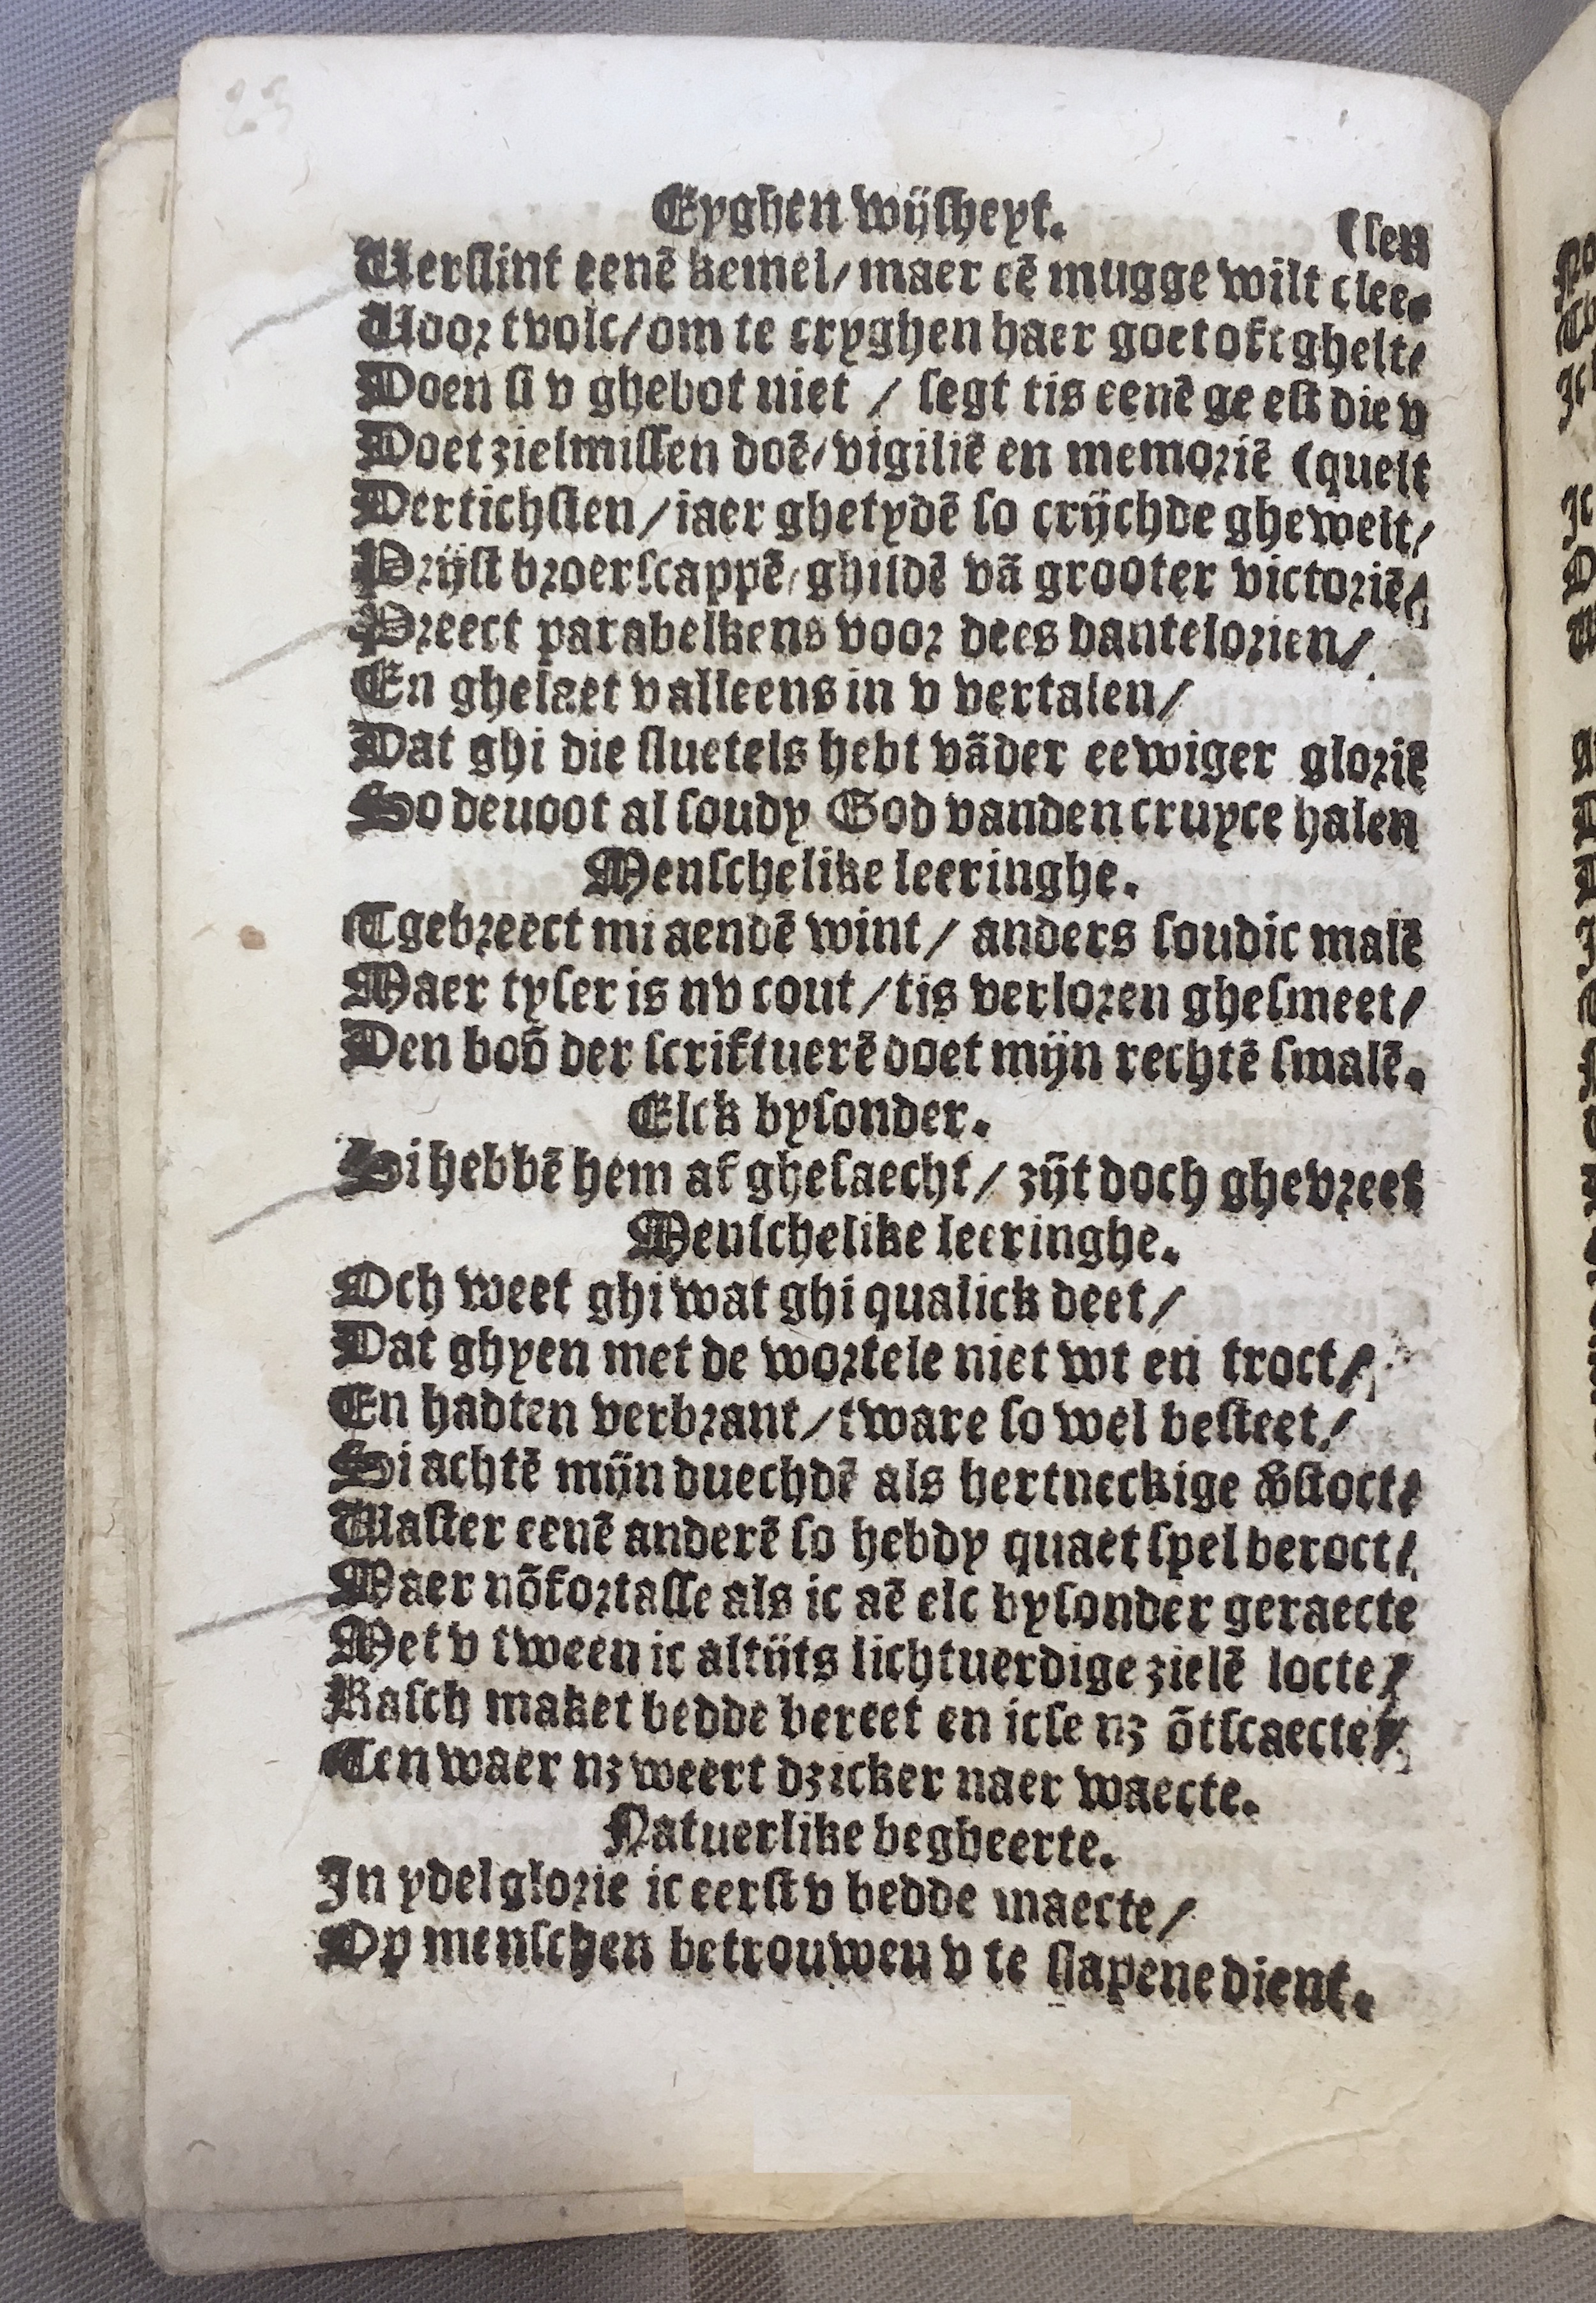 23
Eyghen wijsheyt.
(sen
Verslint eenē kemel/ maer eē mugge wilt clee-
Voor tvolc/ om te cryghen haer goet oft ghelt/
Doen si v ghebot niet / segt tis eenē geest die v
Doet zielmissen doē/ vigiliē en memoriē (quelt
Dertichsten/ iaer ghetydē so crijchde ghewelt/
Prijst broerscappē/ ghildē vā grooter victoriē/
Preect parabelkens voor dees vantelorien/
En ghelaet v alleens in v vertalen/
Dat ghi die sluetels hebt vāder eewiger gloriē
So deuoot al soudy God vanden cruyce halen
Menschelike leeringhe.
Tgebreect mi aendē wint/ anders soudic malē
Maer tyser is nv cout/ tis verloren ghesmeet/
Den boō der scriftuerē doet mijn rechtē smalē.
Elck bysonder.
Si hebbē hem af ghesaecht/ zijt doch ghevreet
Menschelike leeringhe.
Och weet ghi wat ghi qualick deet/
Dat ghyen met de wortele niet wt en troct/
En hadten verbrant/ tware so wel besteet/
Si achtē mijn duechdē als hertneckige v̄stoct/
Waster eenē anderē so hebdy quaet spel beroct/
Maer nō fortasse als ic aē elc bysonder geraecte
Met v tween ic altijts lichtuerdige zielē locte/
Rasch maket bedde bereet en icse nz ōtscaecte/
Ten waer nz weert dzicker naer waecte.
Natuerlike begheerte.
In ydel glorie ic eerst v bedde maecte/
Op menschen betrouwen v te slapene dient.